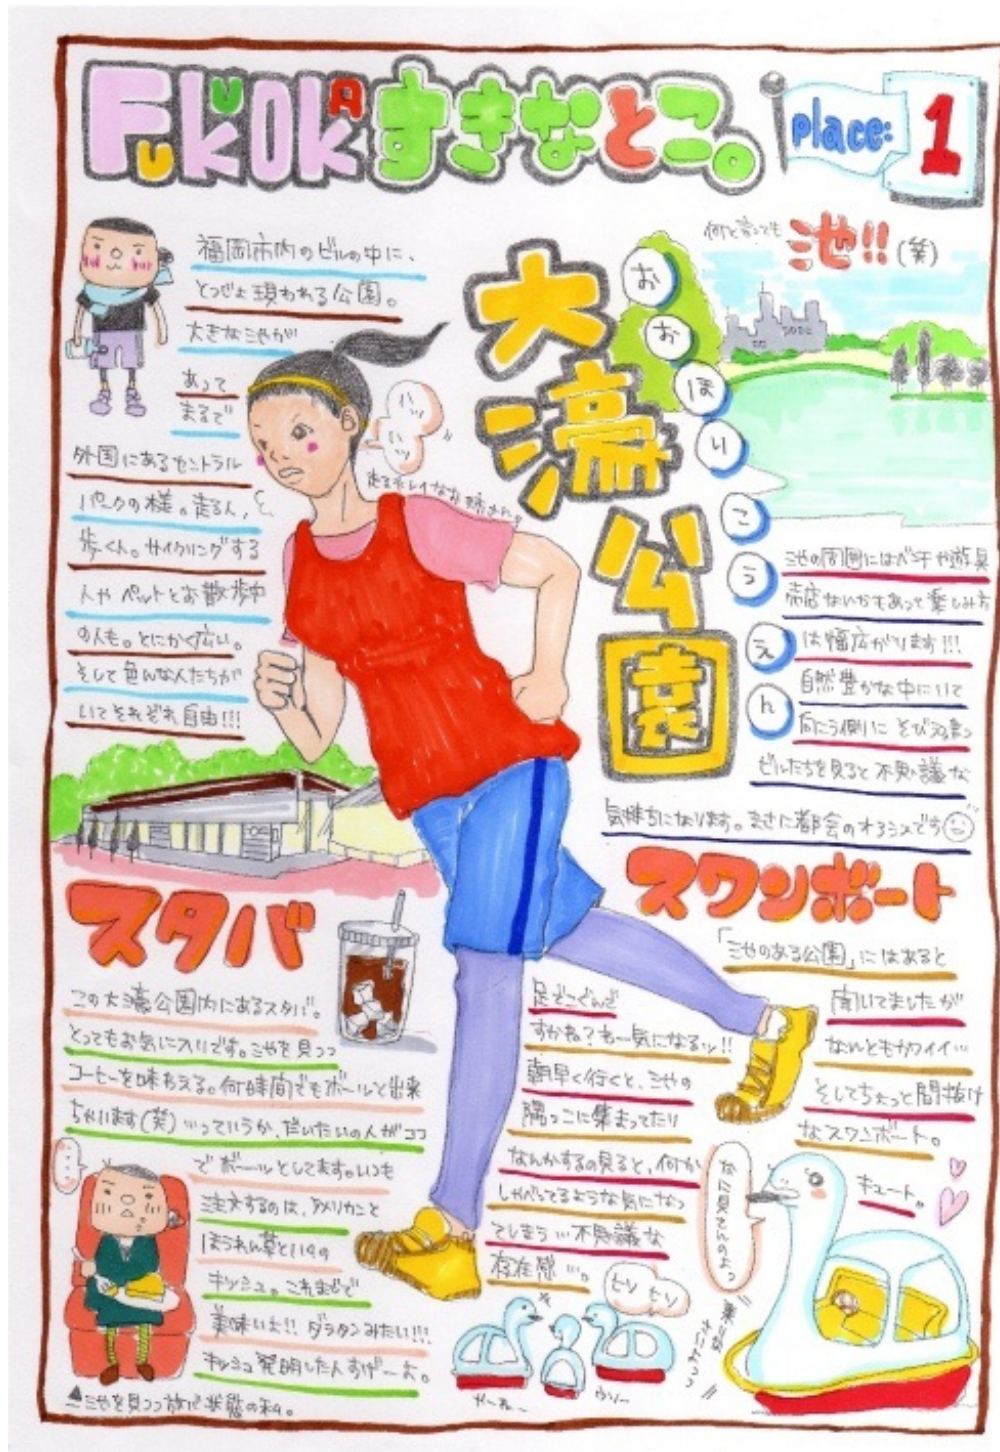 FUKUOKA すきなとこ。
place: 1
福岡市内のビルの中に、
とつじょ現われる公園。
大きな池が
あって
まるで
外国にあるセントラル
パークの様。走る人、
歩く人。サイクリングする
人や ペットとお散歩中
の人も。とにかく広い。
そして色んな人たちが
いてそれぞれ自由!!!
ハッ
ハッ
走るキレイなお姉さん。
大濠公園
おおほりこうえん
何と言っても
池!!(笑)
池の周囲にはベンチや遊具
売店なんかもあって楽しみ方
は幅広がります!!!
自然豊かな中にいて
向こう側に そびえ立つ
ビルたちを見ると不思議な
気持ちになります。まさに都会のオアシスです
スタバ
この大濠公園内にあるスタバ。
とってもお気に入りです。池を見つつ
コーヒーを味わえる。何時間でもボーッと出来
ちゃいます(笑)…っていうか、だいたいの人がココ
でボーッとしてます。いつも
注文するのは、アメリカンと
ほうれん草といもの
キッシュ。これまじで
美味いよ!! グラタンみたい!!!
キッシュ発明した人すげーよ。
▲池を見つつ放心状態の私。
スワンボート
「池のある公園」にはあると
聞いてましたが
なんともカワイイ…
そしてちょっと間抜け
なスワンボート。
キュート。
足でこぐんで
すかね?わー気になるッ!!
朝早く行くと、池の
隅っこに集まってたり
なんかするの見ると、何か
しゃべってるような気になっ
てしまう…不思議な
存在感…。
ヒソヒソ
やーねー
ウソー
なに見てんのよっ